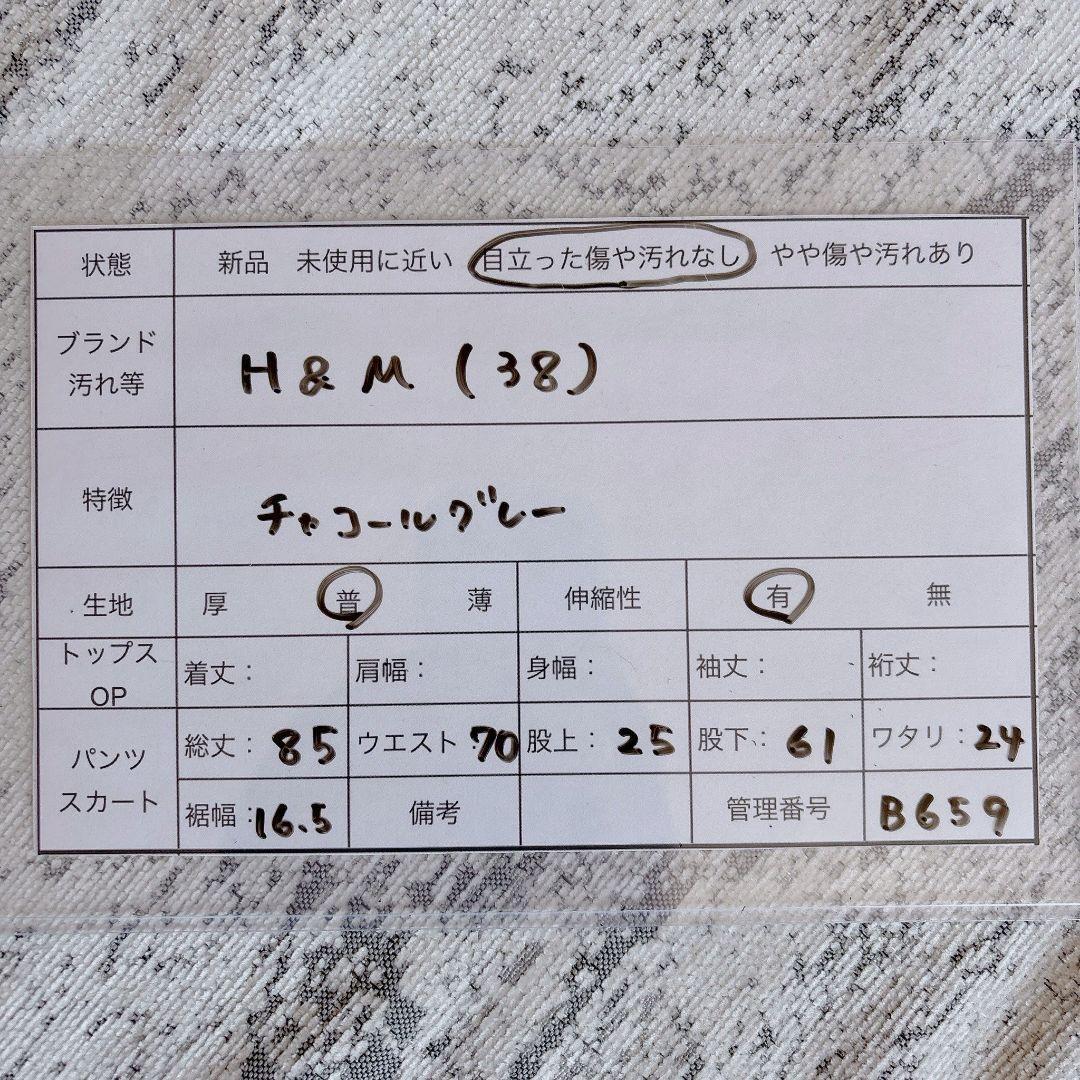 状態 新品 未使用に近い 目立った傷や汚れなし やや傷や汚れあり
ブランド
汚れ等
H & M (38)
特徴
チャコールグレー
生地 厚 普 薄 伸縮性 有 無
トップス
OP
着丈: 肩幅: 身幅: 袖丈: 裄丈:
パンツ
スカート
総丈: 85 ウエスト: 70 股上: 25 股下: 61 ワタリ: 24
裾幅: 16.5 備考 管理番号 B659